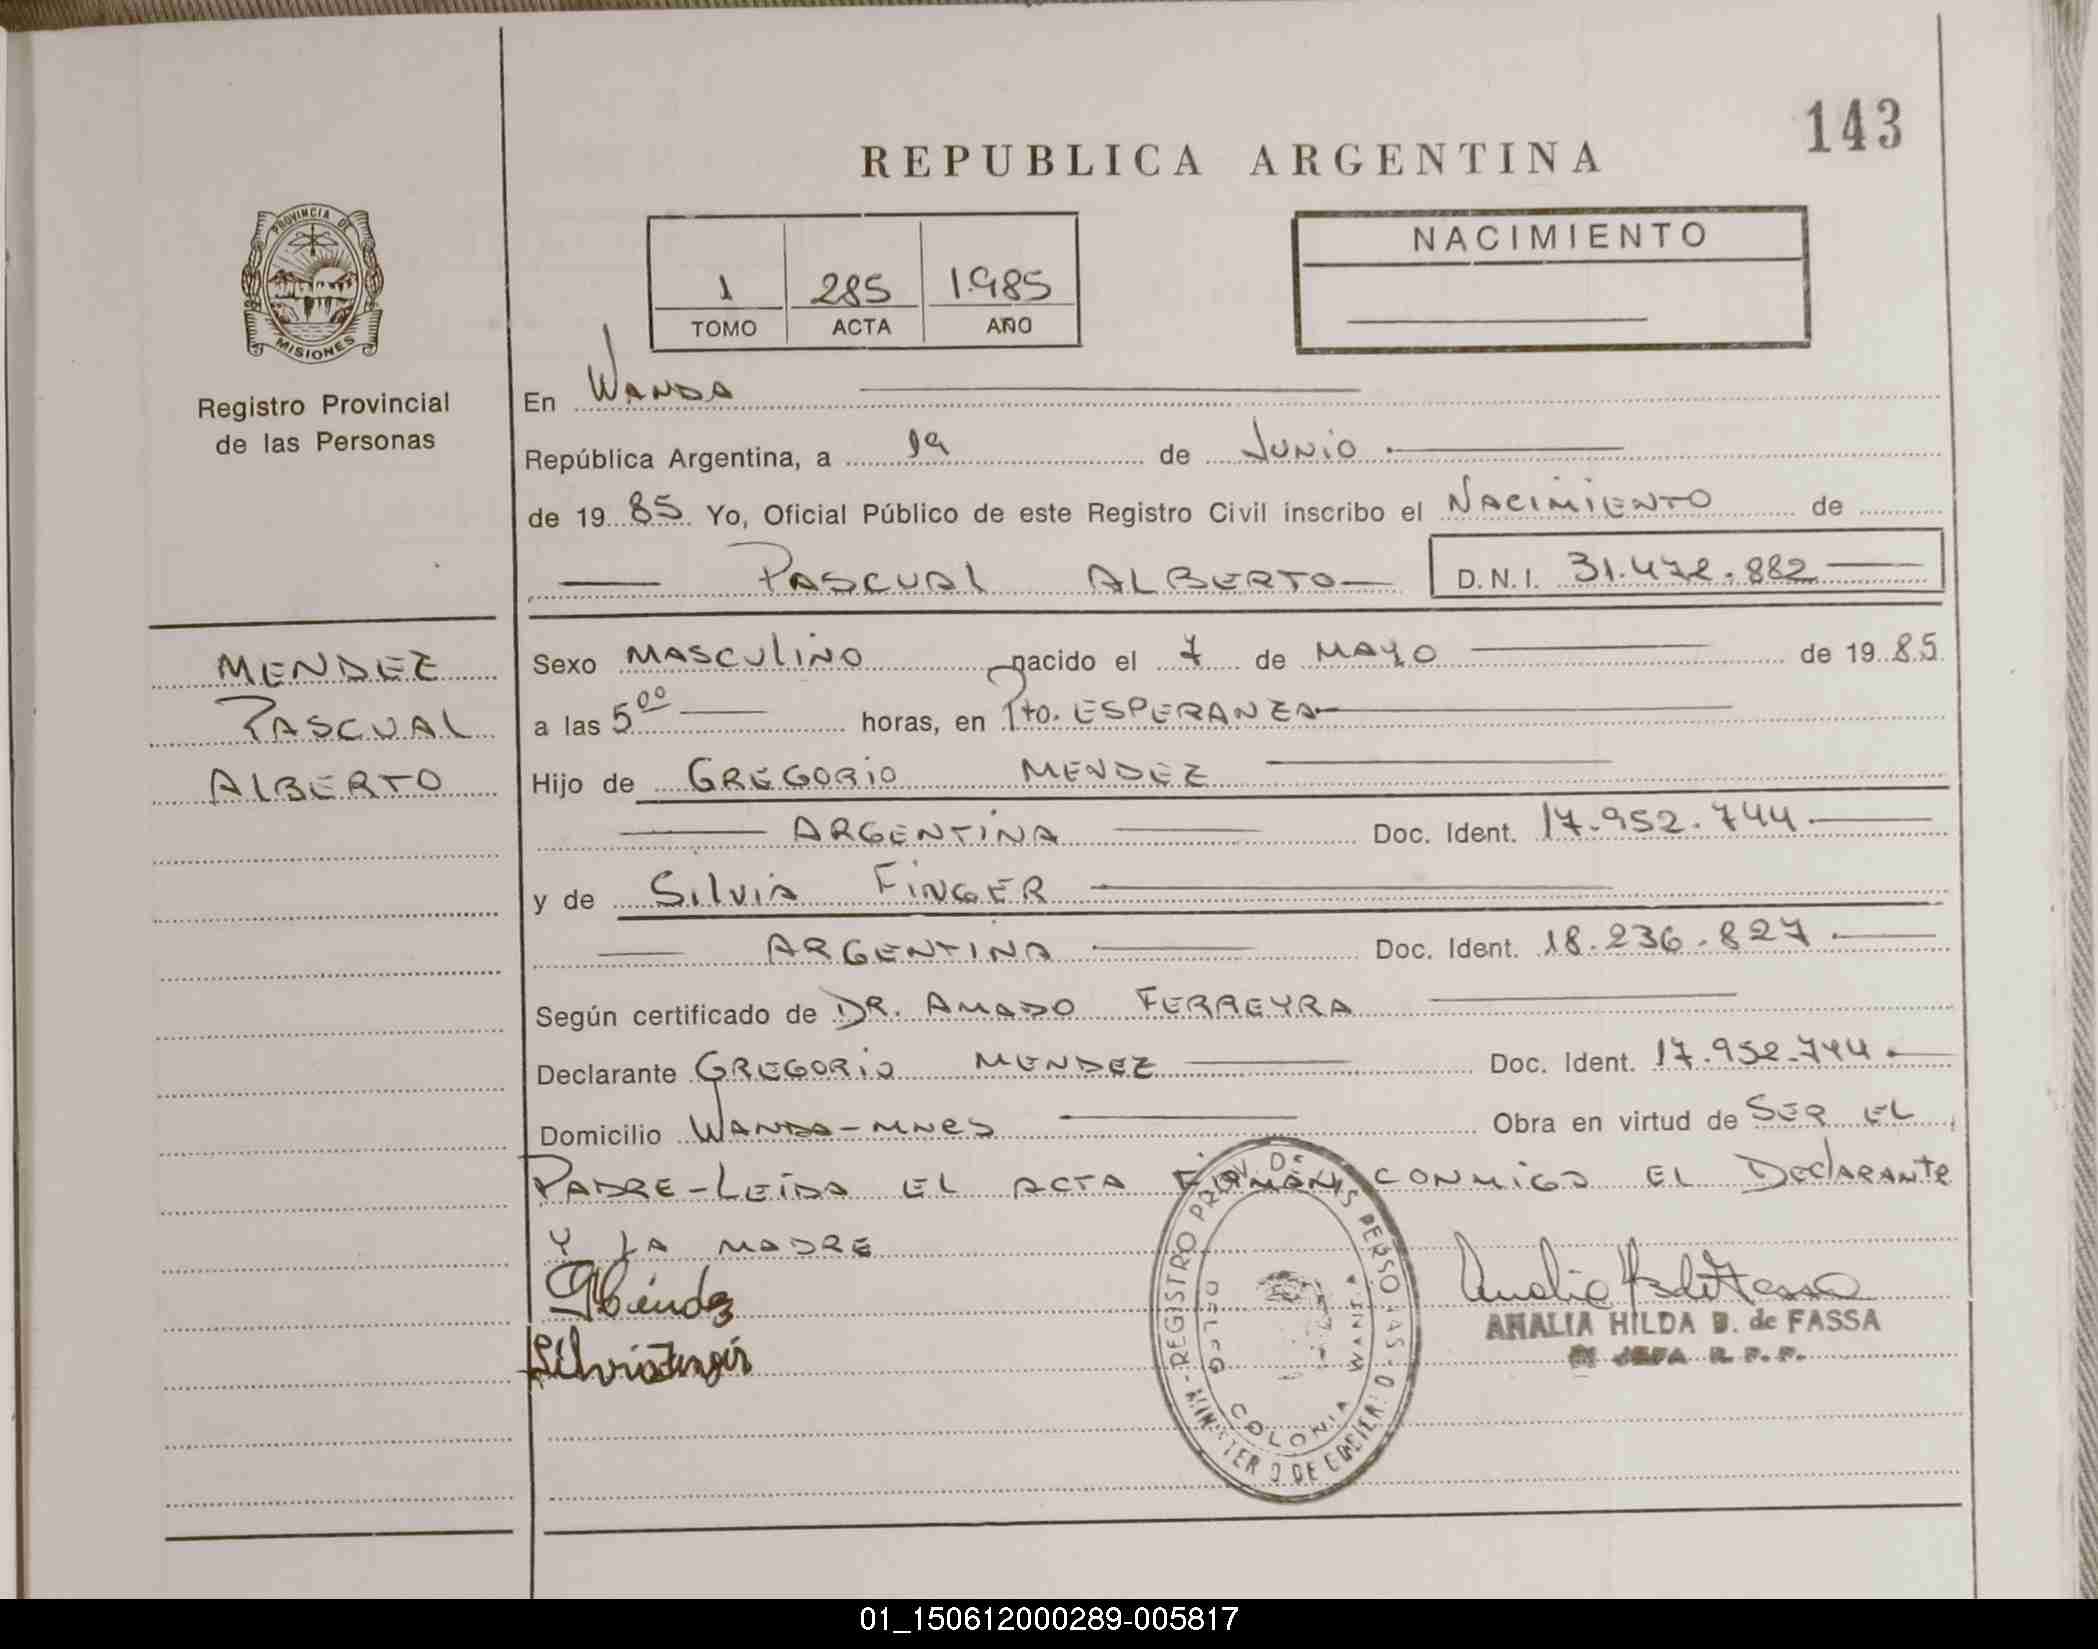 143
REPUBLICA ARGENTINA
PROVINCIA DE
MISIONES
Registro Provincial
de las Personas
1 285 1985
TOMO ACTA AÑO
NACIMIENTO
En WANDA
República Argentina, a 19 de JUNIO
de 19 85 Yo, Oficial Público de este Registro Civil inscribo el NACIMIENTO de
PASCUAL ALBERTO D.N.I. 31.472.882
MENDEZ
PASCUAL
ALBERTO
Sexo MASCULINO nacido el 7 de MAYO de 19 85
a las 5 00 horas, en Pto. ESPERANZA
Hijo de GREGORIO MENDEZ
ARGENTINA Doc. Ident. 17.952.744
y de SILVIA FINGER
ARGENTINA Doc. Ident. 18.236.827
Según certificado de DR. AMADO FERREYRA
Declarante GREGORIO MENDEZ Doc. Ident. 17.952.744
Domicilio WANDA-MNES Obra en virtud de SER EL
PADRE-LEIDA EL ACTA FIRMAN CONMIGO EL DECLARANTE
Y LA MADRE
ANALIA HILDA B. de FASSA
JEFA R. P. P.
REGISTRO PROV. DE LAS PERSONAS
MINISTERIO DE GOBIERNO
DELEG
COLONIA WANDA
01_150612000289-005817